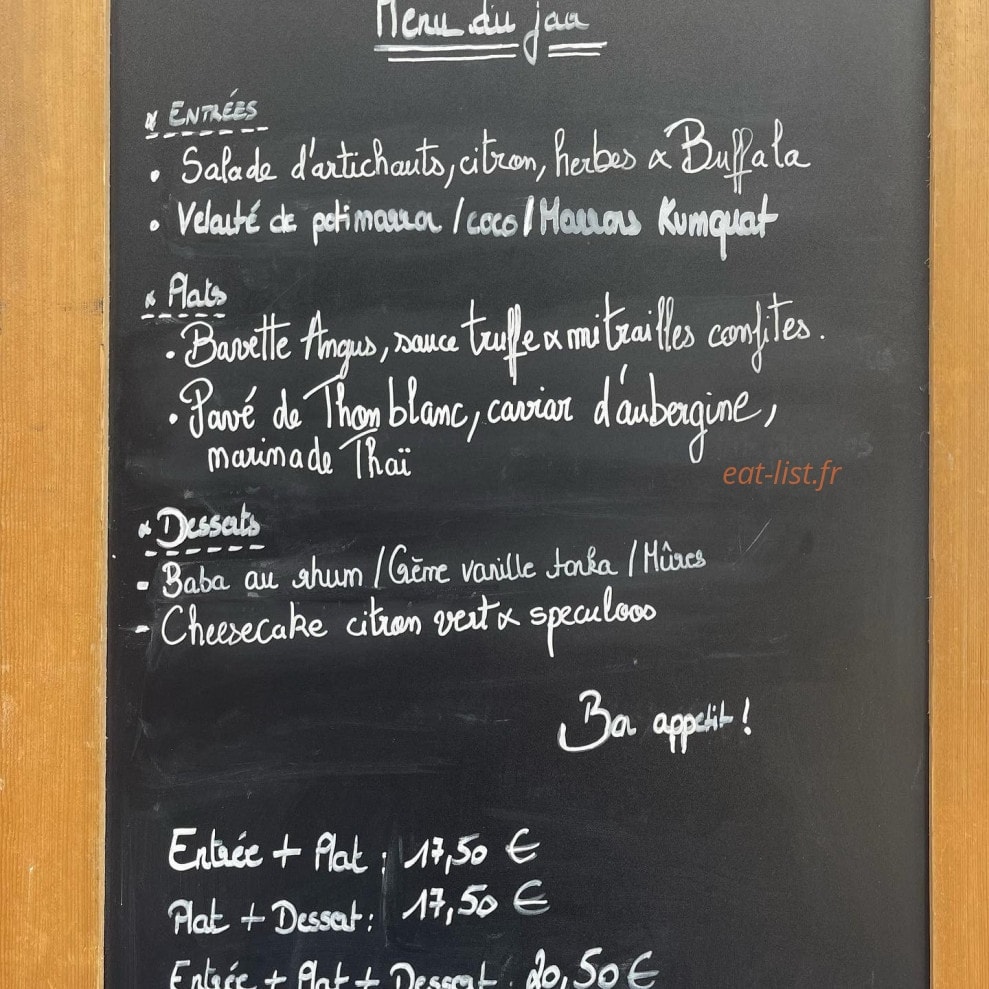 Menu du jour
× ENTRÉES
• Salade d'artichauts, citron, herbes & Buffala
• Velouté de potimarron / coco / Marrons Kumquat
× Plats
• Bavette Angus, sauce truffe & mitrailles confites.
• Pavé de Thon blanc, caviar d'aubergine,
marinade Thaï
eat-list.fr
× Desserts
- Baba au rhum / Crème vanille tonka / Mûres
- Cheesecake citron vert & speculoos
Bon appetit !
Entrée + Plat : 17,50 €
Plat + Dessert : 17,50 €
Entrée + Plat + Dessert : 20,50 €